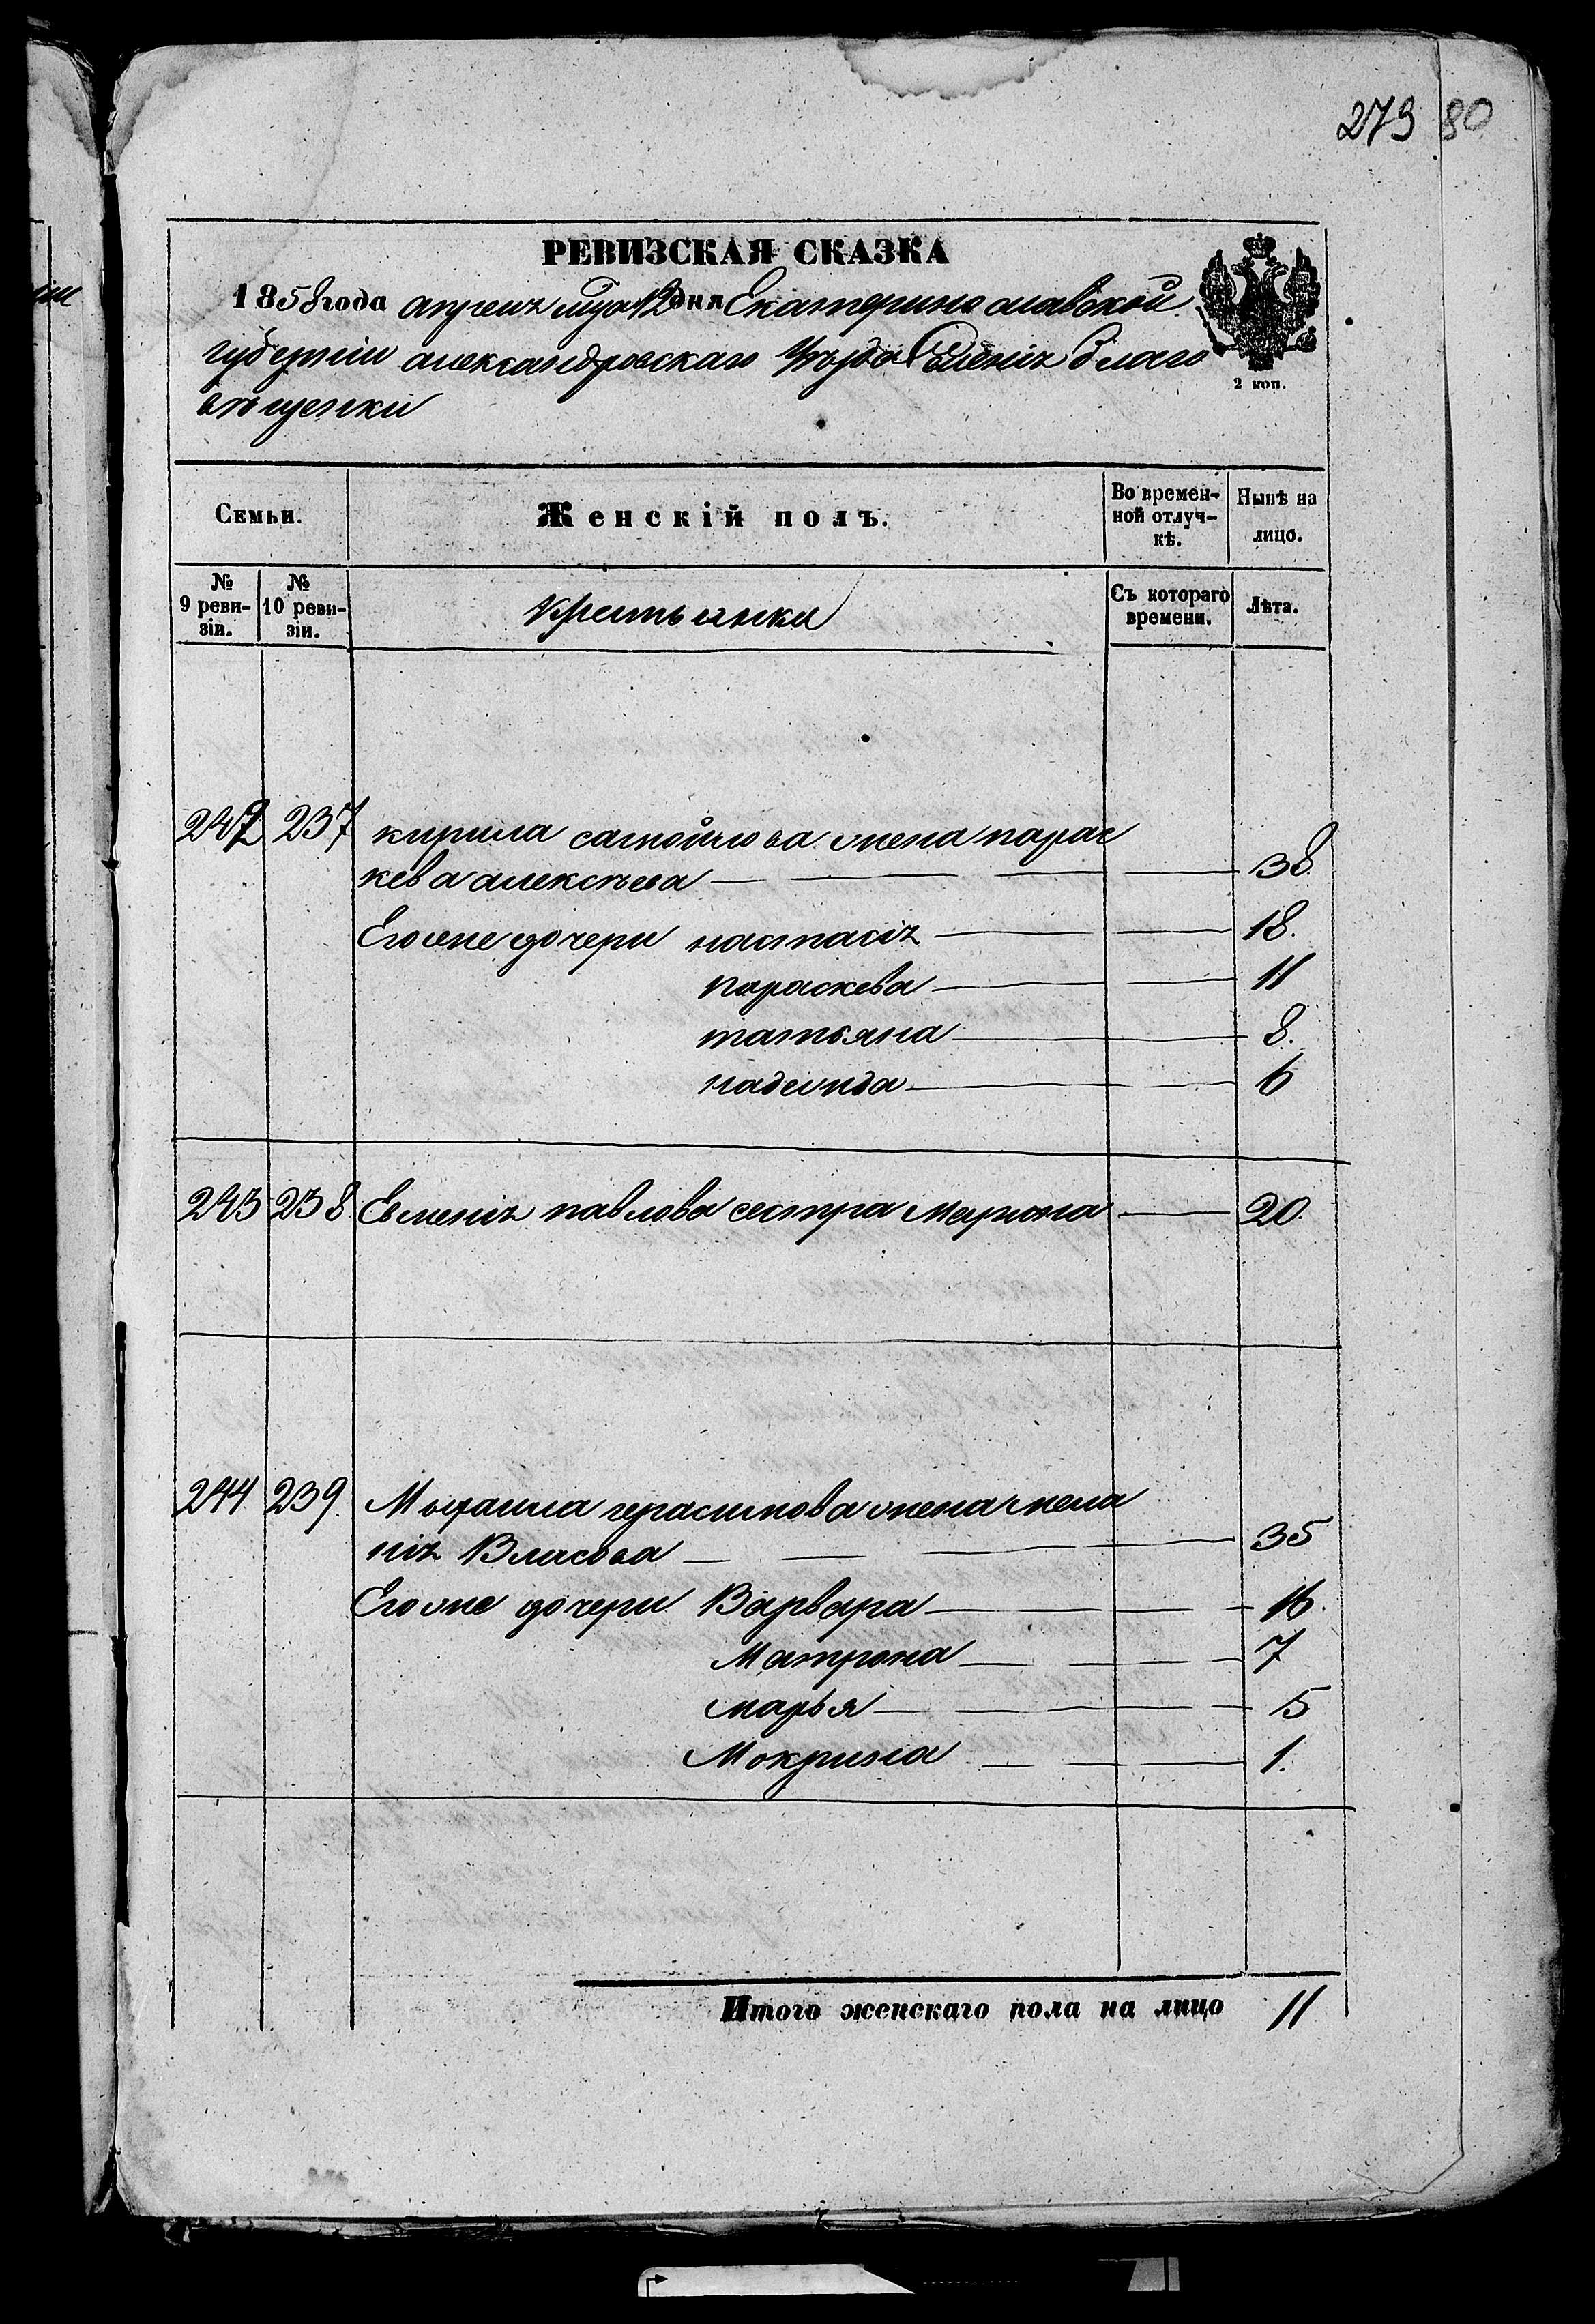 279 80
РЕВИЗСКАЯ СКАЗКА
1858 года апреля мца 12 дня Екатеринославской
губерніи александровскаго Уѣзда Селенія благо
вѣщенки
2 коп.
Семьи. Женскій полъ. Во времен-
ной отлуч-
кѣ. Нынѣ на
лицо.
№
9 реви-
зіи. №
10 реви-
зіи. крестьянки Съ котораго
времени. Лѣта.
242 237 кирила самойлова жена парас
кева алексѣева 38.
Его же дочери настасія 18.
параскева 11
татьяна 8.
надежда 6
243 238 Евменія павлова сестра Марюна 20.
244 239. Михаила герасимова жена мела
нія Власова 35
Его же дочери Варвара 16.
Матрона 7
марья 5
Мокрина 1.
Итого женскаго пола на лицо 11